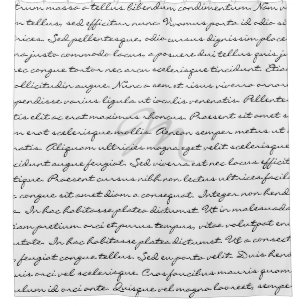 trum massa a tellus bibendum condimentum. Nam i
n tellus, sed efficitur nunc. Vivamus porta id odio si
ricies. Sed pellentesque, odio cursus dignissim place
na justo commodo lacus, a posuere dui tellus quis ju
nec congue tortor nec arcu scelerisque tincidunt. Etia
ollicitudin augue. Nunc a sem et risus viverra ornare
pendisse varius ligula ut iaculis venenatis. Pellente
tis elit ac erat maximus rhoncus. Praesent sit amet s
m erat scelerisque mollis. Aenean semper metus ut e
natis. Aliquam ultricies magna eget velit scelerisque
cidunt augue feugiat. Sed viverra est nec lacus efficit
tique. Praesent cursus nibh non lectus ultrices facilis
congue sit amet diam a consequat. Integer non hend
a. In hac habitasse platea dictumst. Ut in malesuada
iam pretium orci et purus tempus, vitae volutpat en
utate. In hac habitasse platea dictumst. Ut a consect
feugiat congue tellus. Sed eu porta velit. Duis hend
ris orci vel scelerisque. Cras faucibus mauris quam
ulum orci ante. Quisque vel magna laoreet, sempe